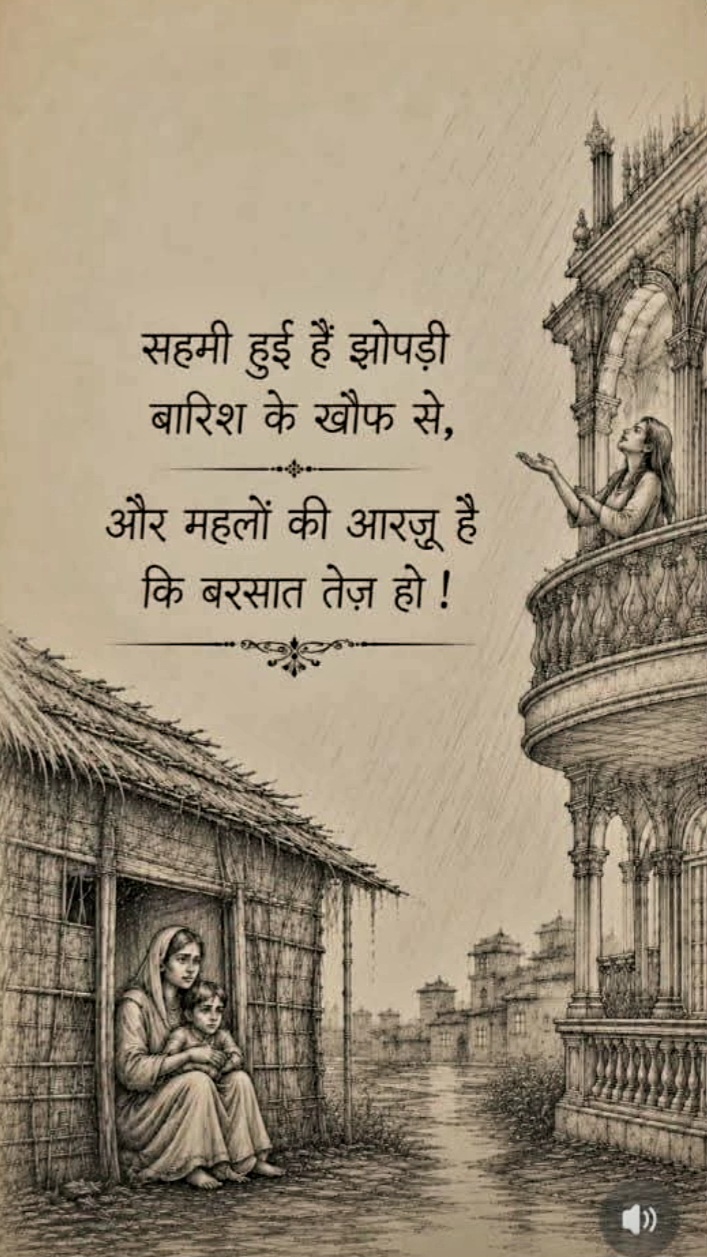 सहमी हुई हैं झोपड़ी
बारिश के खौफ से,
और महलों की आरज़ू है
कि बरसात तेज़ हो !